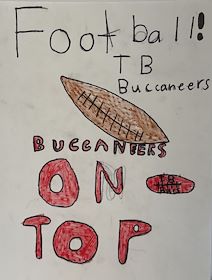 Football!
TB
Buccaneers
BUCCANEERS
ON-
TOP